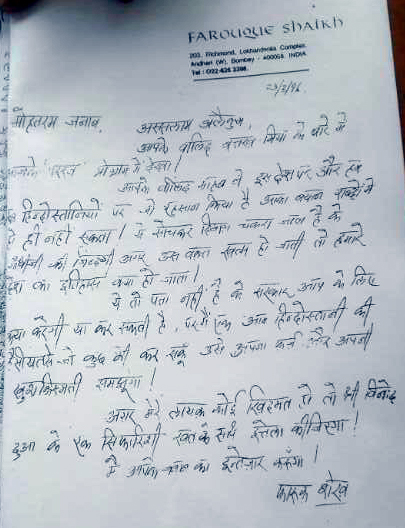 FAROUQUE SHAIKH
203, Richmond, Lokhandwala Complex,
Andheri (W), Bombay - 400058. INDIA
23/2/96.
मोहतरम जनाब,
अस्सलाम अलैकुम,
आपके वालिद बत्तख मियां के बारे में
प्रोग्राम में देखा!
आपके वालिद साहब ने इस देश पर और हम
हिन्दोस्तानियों पर जो एहसान किया है उसका बयान
हो ही नहीं सकता! ये सोचकर दिमाग़ चकरा जाता है के
गाँधीजी की ज़िन्दगी अगर उस वक़्त ख़त्म हो जाती तो हमारे
देश का इतिहास क्या हो जाता!
ये तो पता नहीं है के सरकार आप के लिए
क्या करेगी या कर सकती है, पर मैं एक आम हिन्दोस्तानी की
हैसीयतसे जो कुछ भी कर सकूँ उसे अपना फ़र्ज़ और अपनी
ख़ुशक़िस्मती समझूंगा!
अगर मेरे लायक़ कोई ख़िदमत हो तो श्री विनोद
दुआ के एक सिफ़ारिशी ख़तके साथ इत्तेला कीजिएगा!
मैं आपके का इन्तेज़ार करूँगा!
फ़ारूक़ शेख़